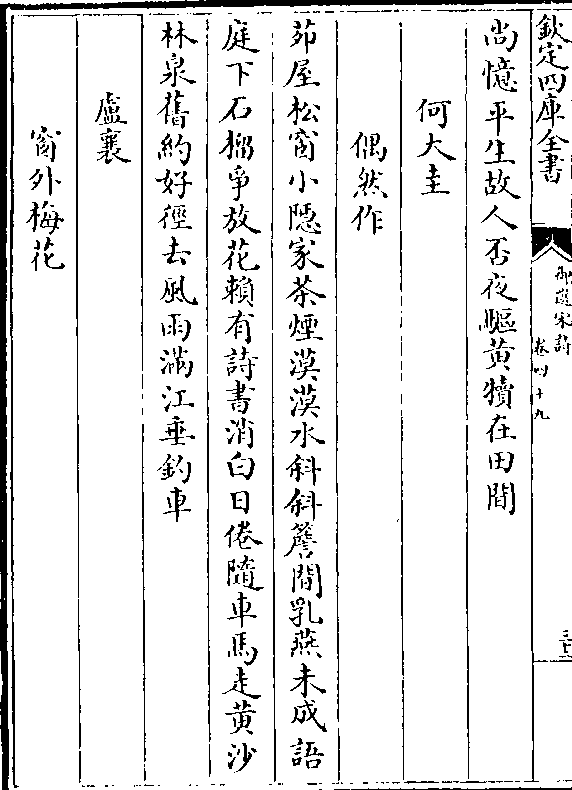 欽定四庫全書
御選宋詩
卷四十九
三十二
尚憶平生故人否夜驅黃犢在田間
何大圭
偶然作
茆屋松窗小隱家茶煙漠漠水斜斜簷間乳燕未成語
庭下石榴爭放花賴有詩書消白日倦隨車馬走黃沙
林泉舊約好徑去風雨滿江垂釣車
盧襄
窗外梅花